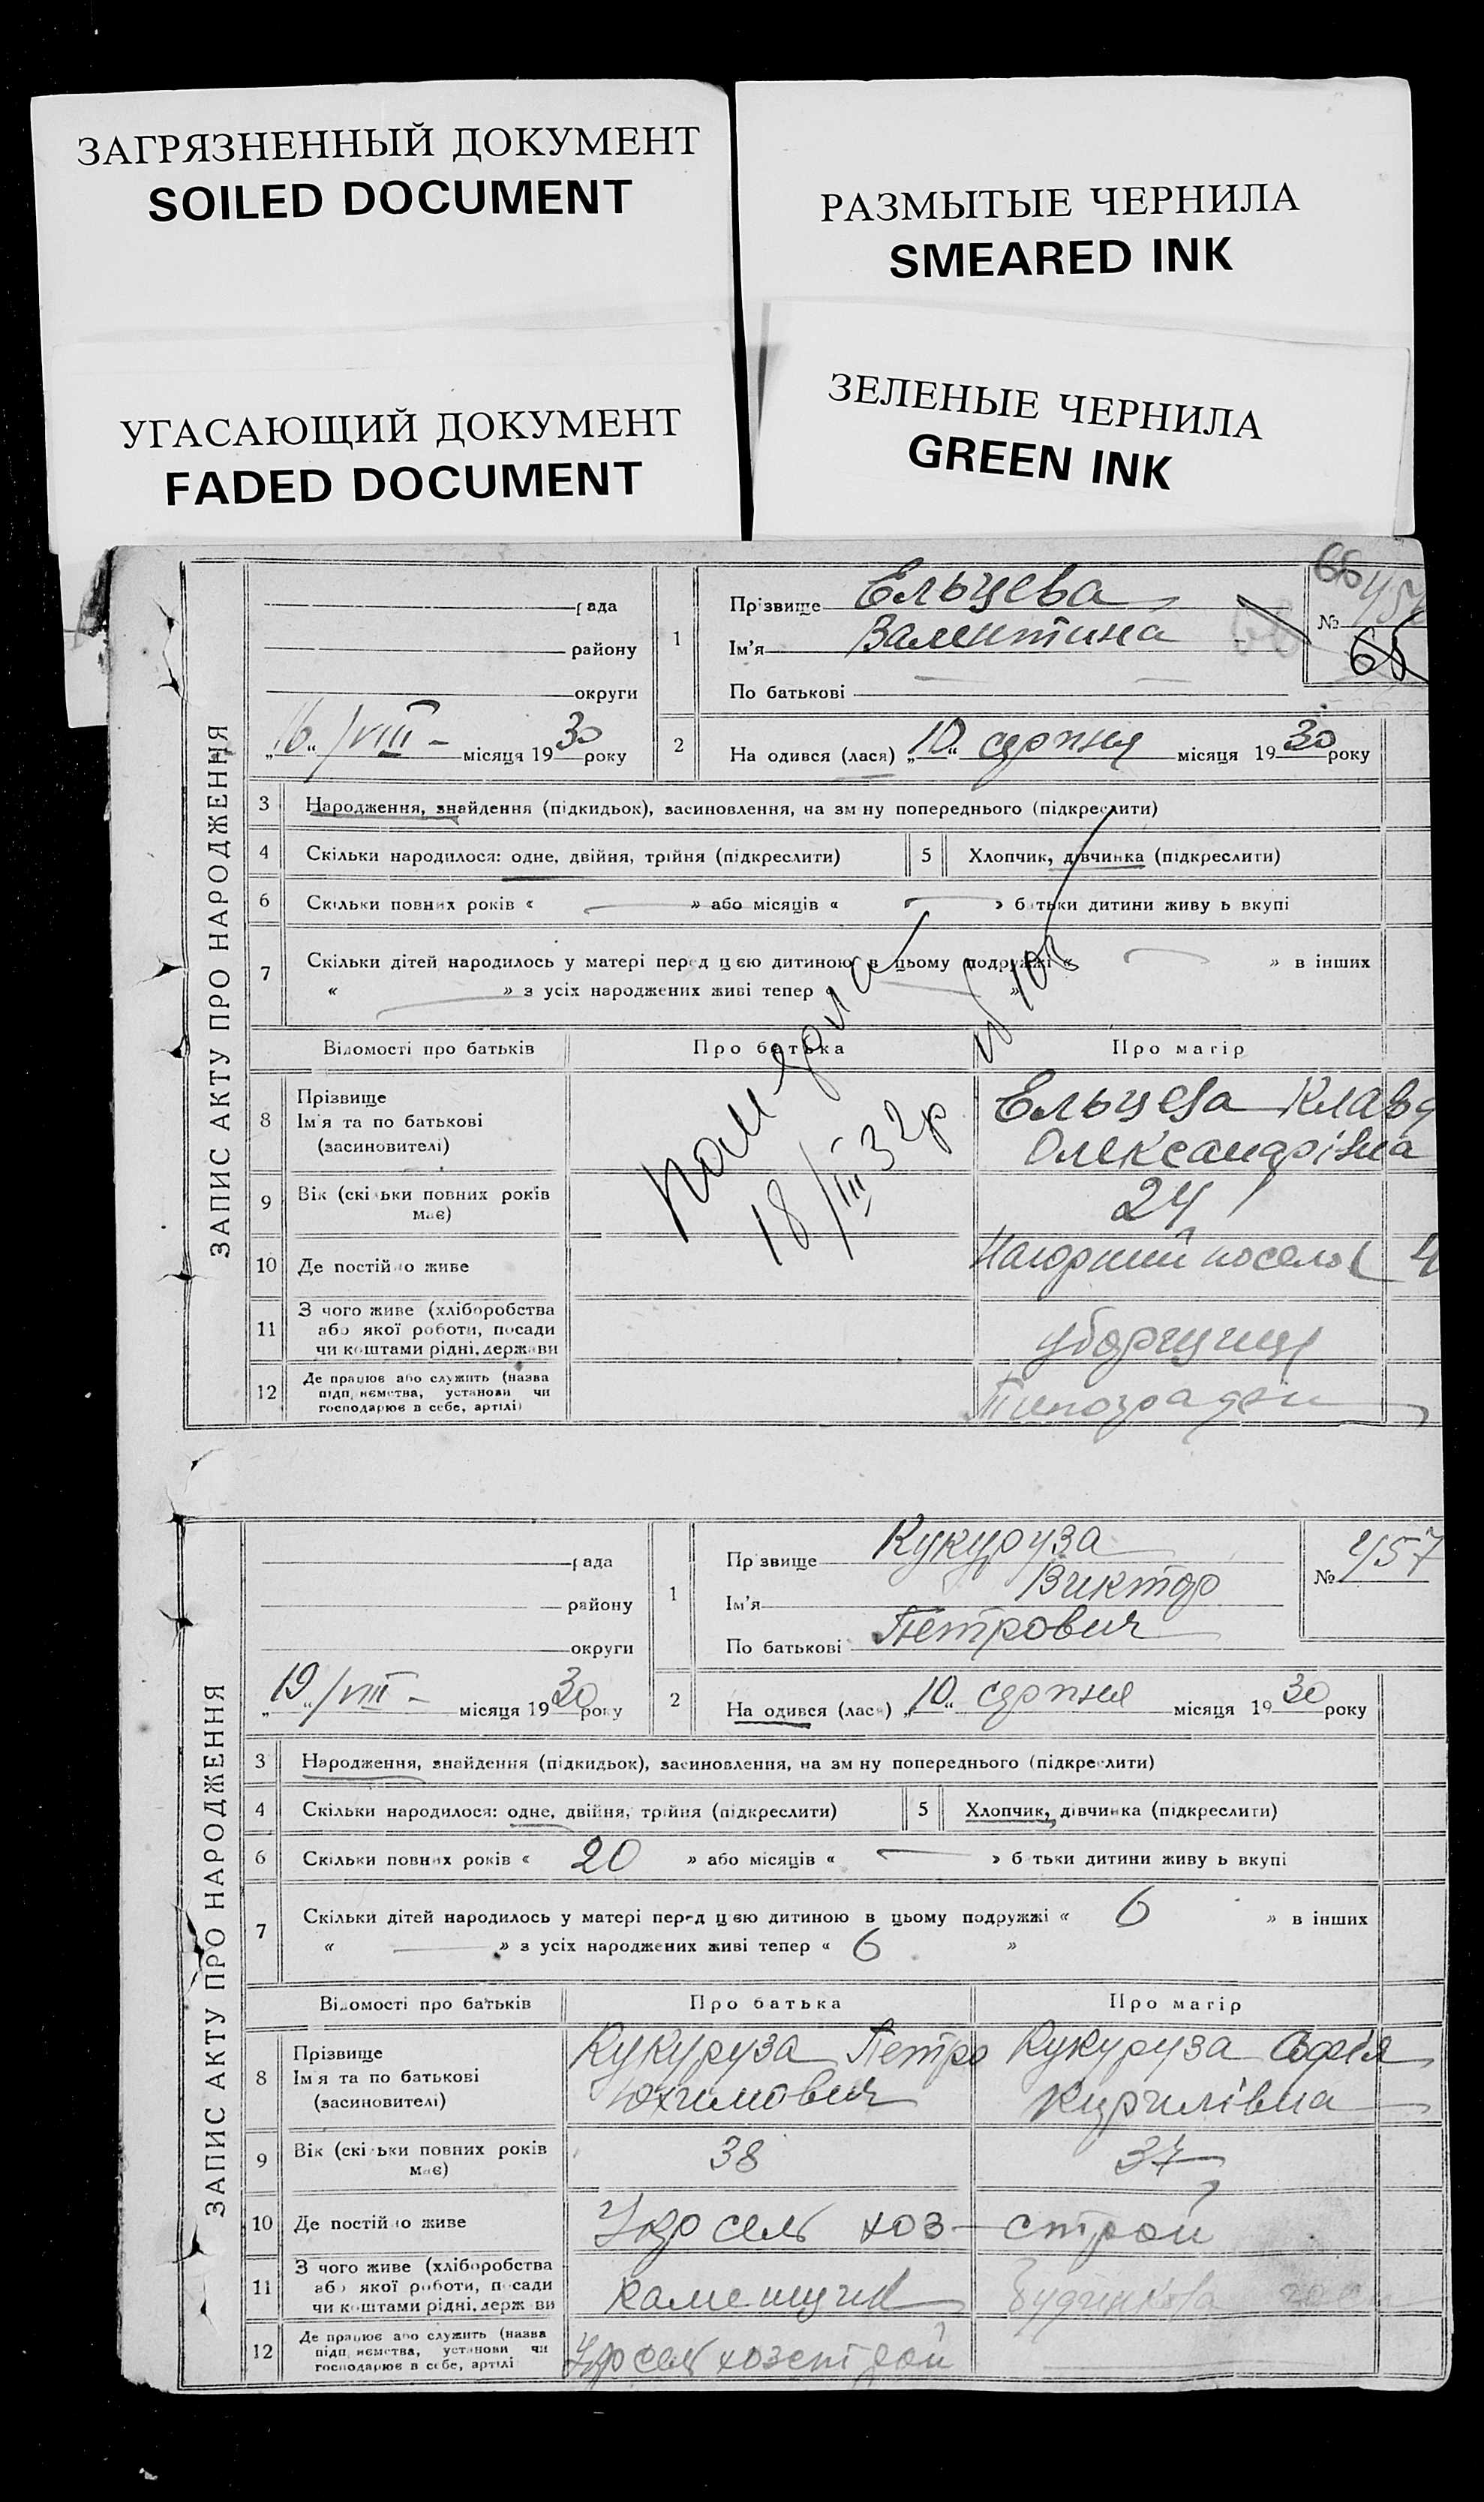 ЗАГРЯЗНЕННЫЙ ДОКУМЕНТ
SOILED DOCUMENT
РАЗМЫТЫЕ ЧЕРНИЛА
SMEARED INK
УГАСАЮЩИЙ ДОКУМЕНТ
FADED DOCUMENT
ЗЕЛЕНЫЕ ЧЕРНИЛА
GREEN INK
ЗАПИС АКТУ ПРО НАРОДЖЕННЯ
рада
району
округи
„16“/VIII - місяця 1930 року
1
Прізвище Ельцева
Ім'я Валентина
По батькові —
66
№ 456
66
2 На одився (лася) „10“ серпня місяця 1930 року
3 Народження, знайдення (підкидьок), засиновлення, на зм ну попереднього (підкреслити)
4 Скільки народилося: одне, двійня, трійня (підкреслити)
5 Хлопчик, дівчинка (підкреслити)
6 Скільки повних років « — » або місяців « — » б тьки дитини живу ь вкупі
7 Скільки дітей народилось у матері перед цією дитиною в цьому подружжі « — » в інших
« — » з усіх народжених живі тепер « — »
Відомості про батьків
Про батька
Про матір
8 Прізвище
Ім'я та по батькові
(засиновителі)
Ельцева Клавд
Олександрівна
18/III 32р
9 Вік (скі ьки повних років має)
24
10 Де постійно живе
Нагорний поселок 4
11 З чого живе (хліборобства
або якої роботи, посади
чи коштами рідні, держави
уборщиця
12 Де працює або служить (назва
підп иємства, установи чи
господарює в себе, артілі)
ЗАПИС АКТУ ПРО НАРОДЖЕННЯ
рада
району
округи
„19“/VIII - місяця 1930 року
1
Пр звище Кукуруза
Ім'я Виктор
По батькові Петрович
№ 457
2 На одився (лася) „10“ серпня місяця 1930 року
3 Народження, знайдення (підкидьок), засиновлення, на зм ну попереднього (підкреслити)
4 Скільки народилося: одне, двійня, трійня (підкреслити)
5 Хлопчик, дівчинка (підкреслити)
6 Скільки повних років « 20 » або місяців « — » б тьки дитини живу ь вкупі
7 Скільки дітей народилось у матері перед цією дитиною в цьому подружжі « 6 » в інших
« — » з усіх народжених живі тепер « 6 »
Відомості про батьків
Про батька
Про матір
8 Прізвище
Ім'я та по батькові
(засиновителі)
Кукуруза Петро
Юхимович
Кукуруза Софія
Кирилівна
9 Вік (скі ьки повних років має)
38
37
10 Де постійно живе
Укр сель хоз-строй
11 З чого живе (хліборобства
або якої роботи, посади
чи коштами рідні, держ ви
Каменщик
12 Де працює або служить (назва
підп иємства, установи чи
господарює в себе, артілі
Укр сель хозстрой